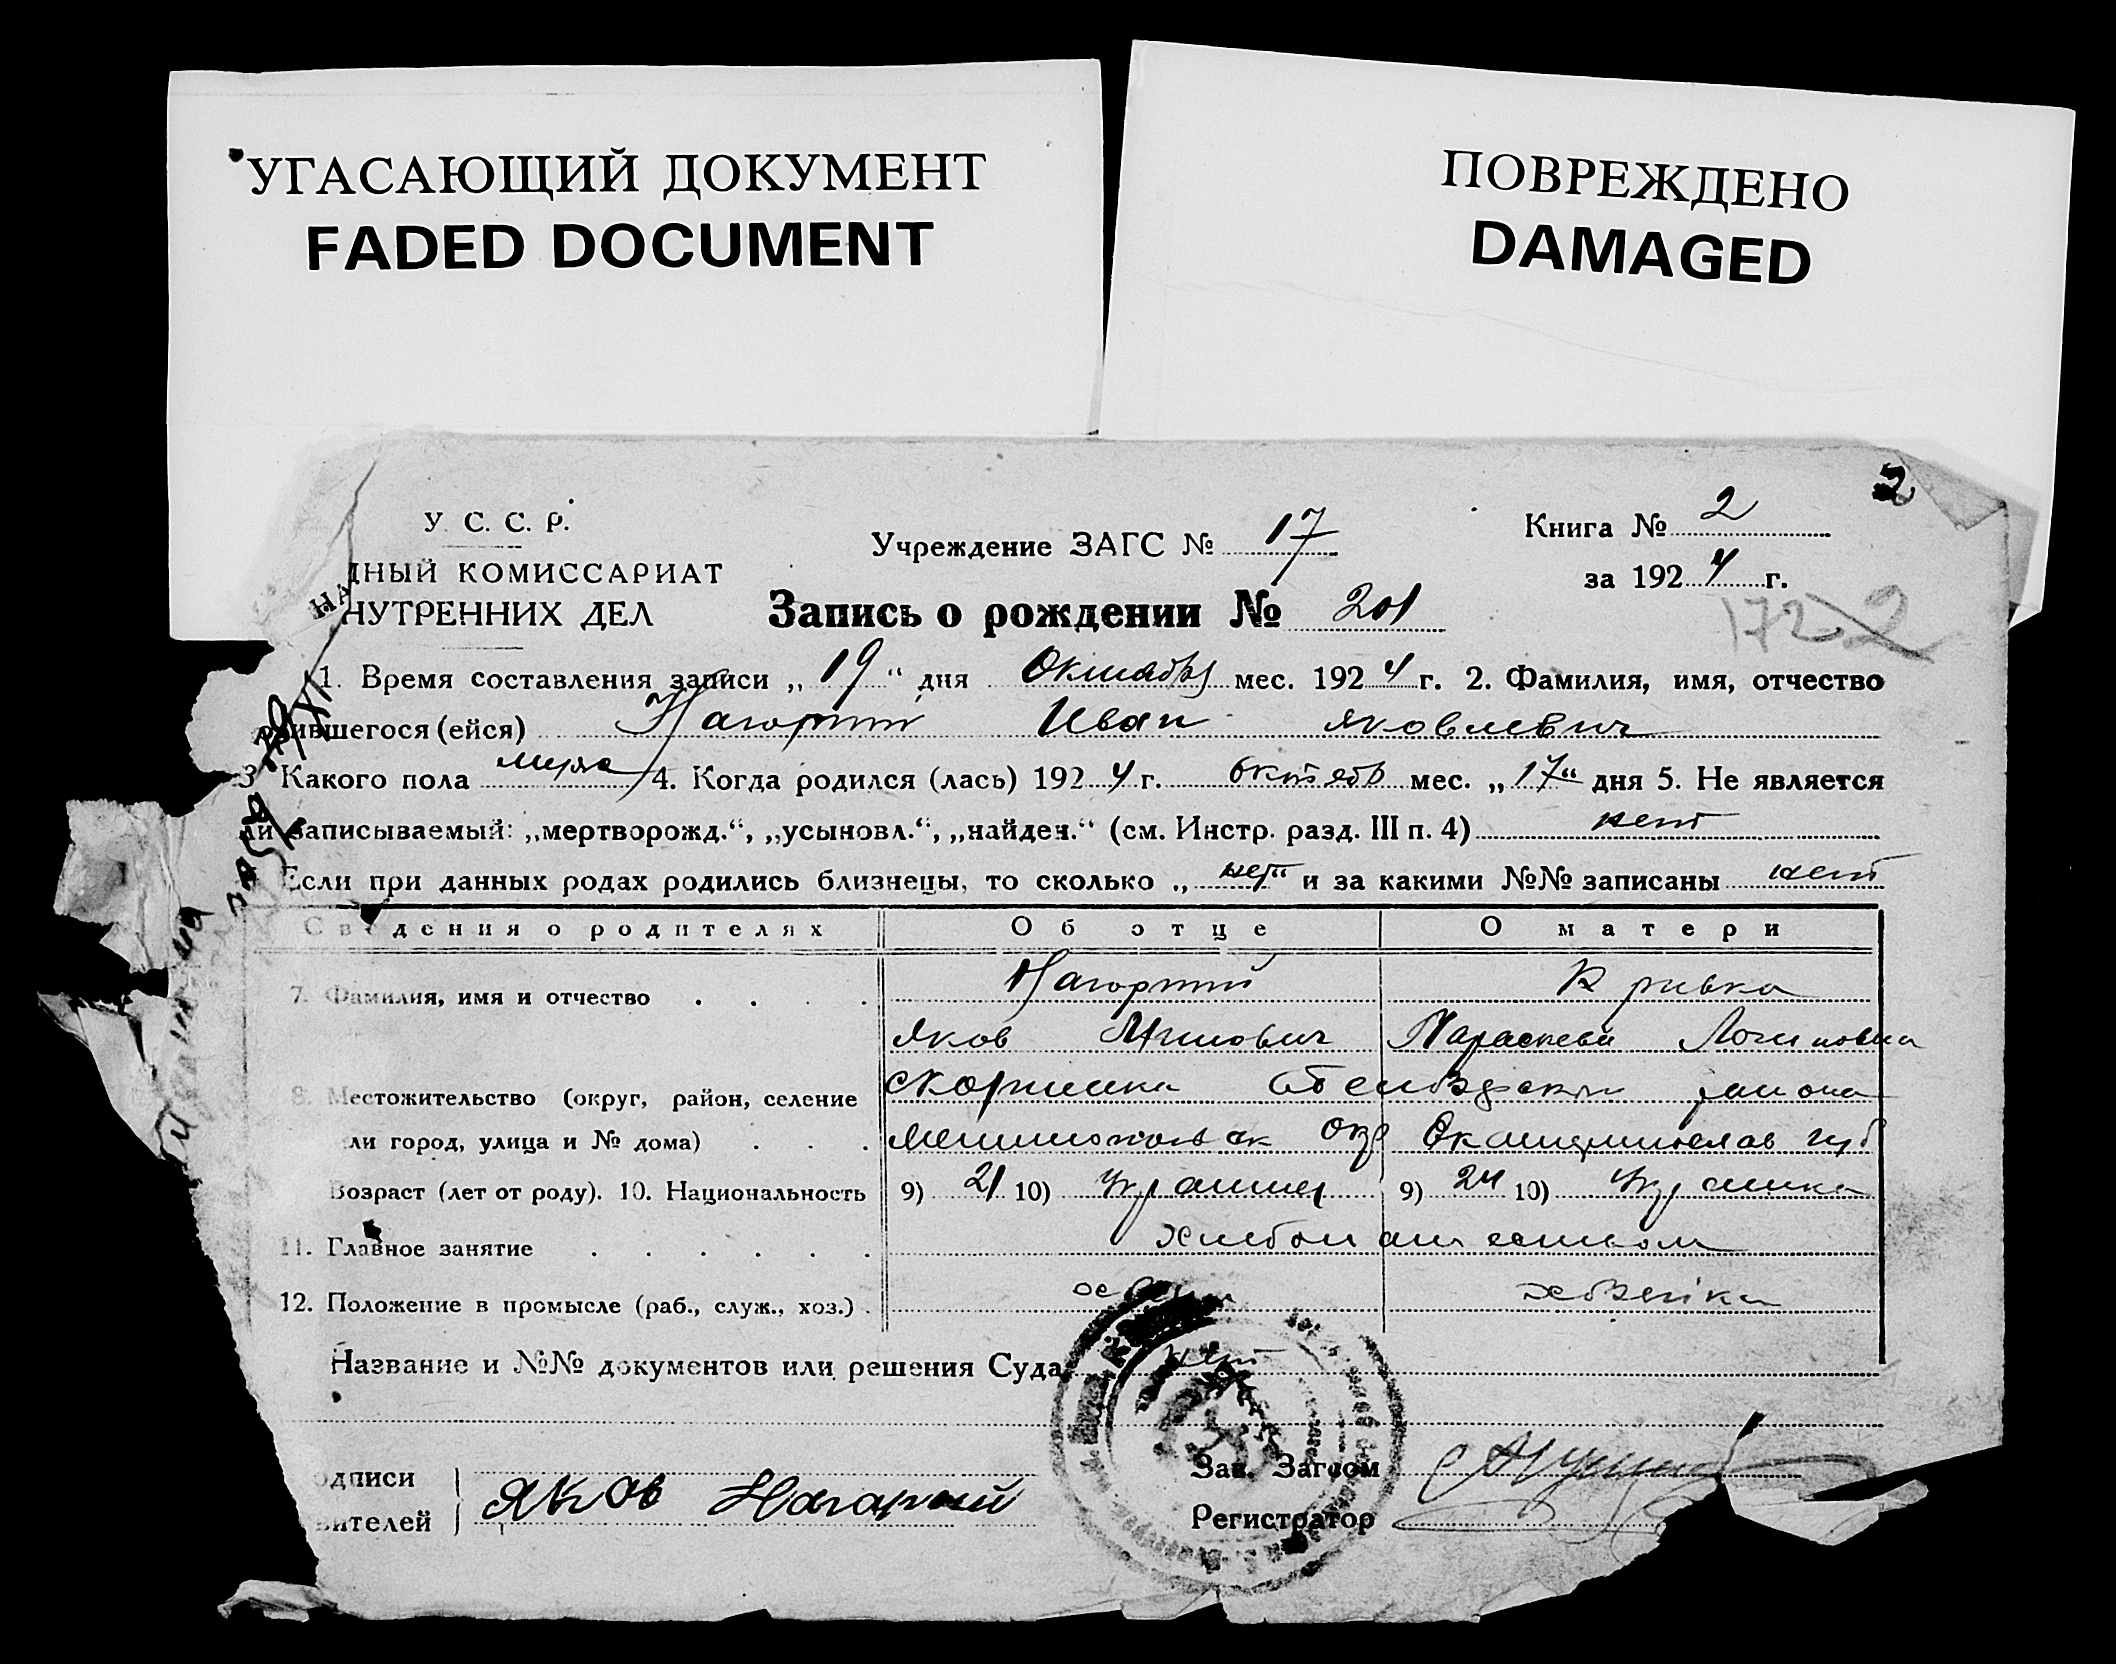 УГАСАЮЩИЙ ДОКУМЕНТ
FADED DOCUMENT
ПОВРЕЖДЕНО
DAMAGED
2
У. С. С. Р.
Учреждение ЗАГС № 17
Книга № 2
НА ДНЫЙ КОМИССАРИАТ
за 1924 г.
НУТРЕННИХ ДЕЛ
Запись о рождении № 201
172 2
1. Время составления записи „19“ дня Октября мес. 1924 г. 2. Фамилия, имя, отчество
родившегося (ейся) Нагорний Иван Яковлевич
3 Какого пола 4. Когда родился (лась) 1924 г. октябр мес. „17“ дня 5. Не является
ли записываемый: „мертворожд.“, „усыновл.“, „найден.“ (см. Инстр. разд. III п. 4) нет
Если при данных родах родились близнецы, то сколько „нет“ и за какими №№ записаны нет
Сведения о родителях Об отце О матери
7. Фамилия, имя и отчество Нагорний Кривка
Яков Параскева Логиновна
8. Местожительство (округ, район, селение района
ли город, улица и № дома) Окр губ
Возраст (лет от роду). 10. Национальность 9) 21 10) Украинец 9) 24 10) Украинка
11. Главное занятие
12. Положение в промысле (раб., служ., хоз.) хозяйка
Название и №№ документов или решения Суда нет
одписи
вителей
Яков Нагарний
Зав. Загсом
Регистратор